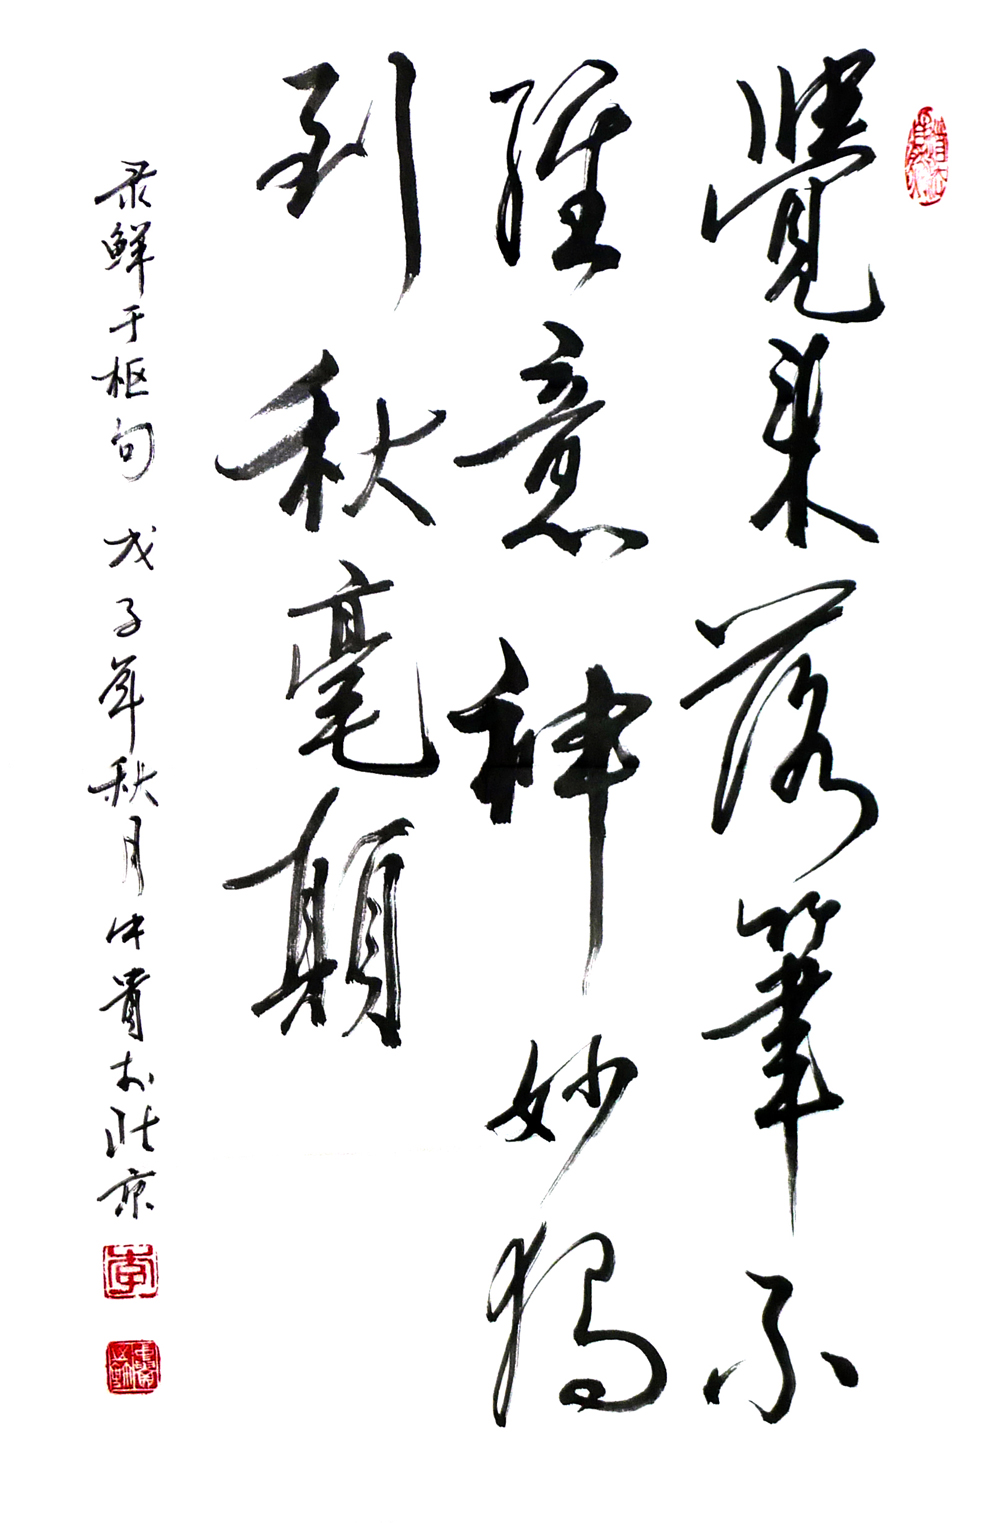 覺来落筆不
經意神妙獨
到秋毫顛
录鮮于枢句 戊子年秋月中貴於北京
李